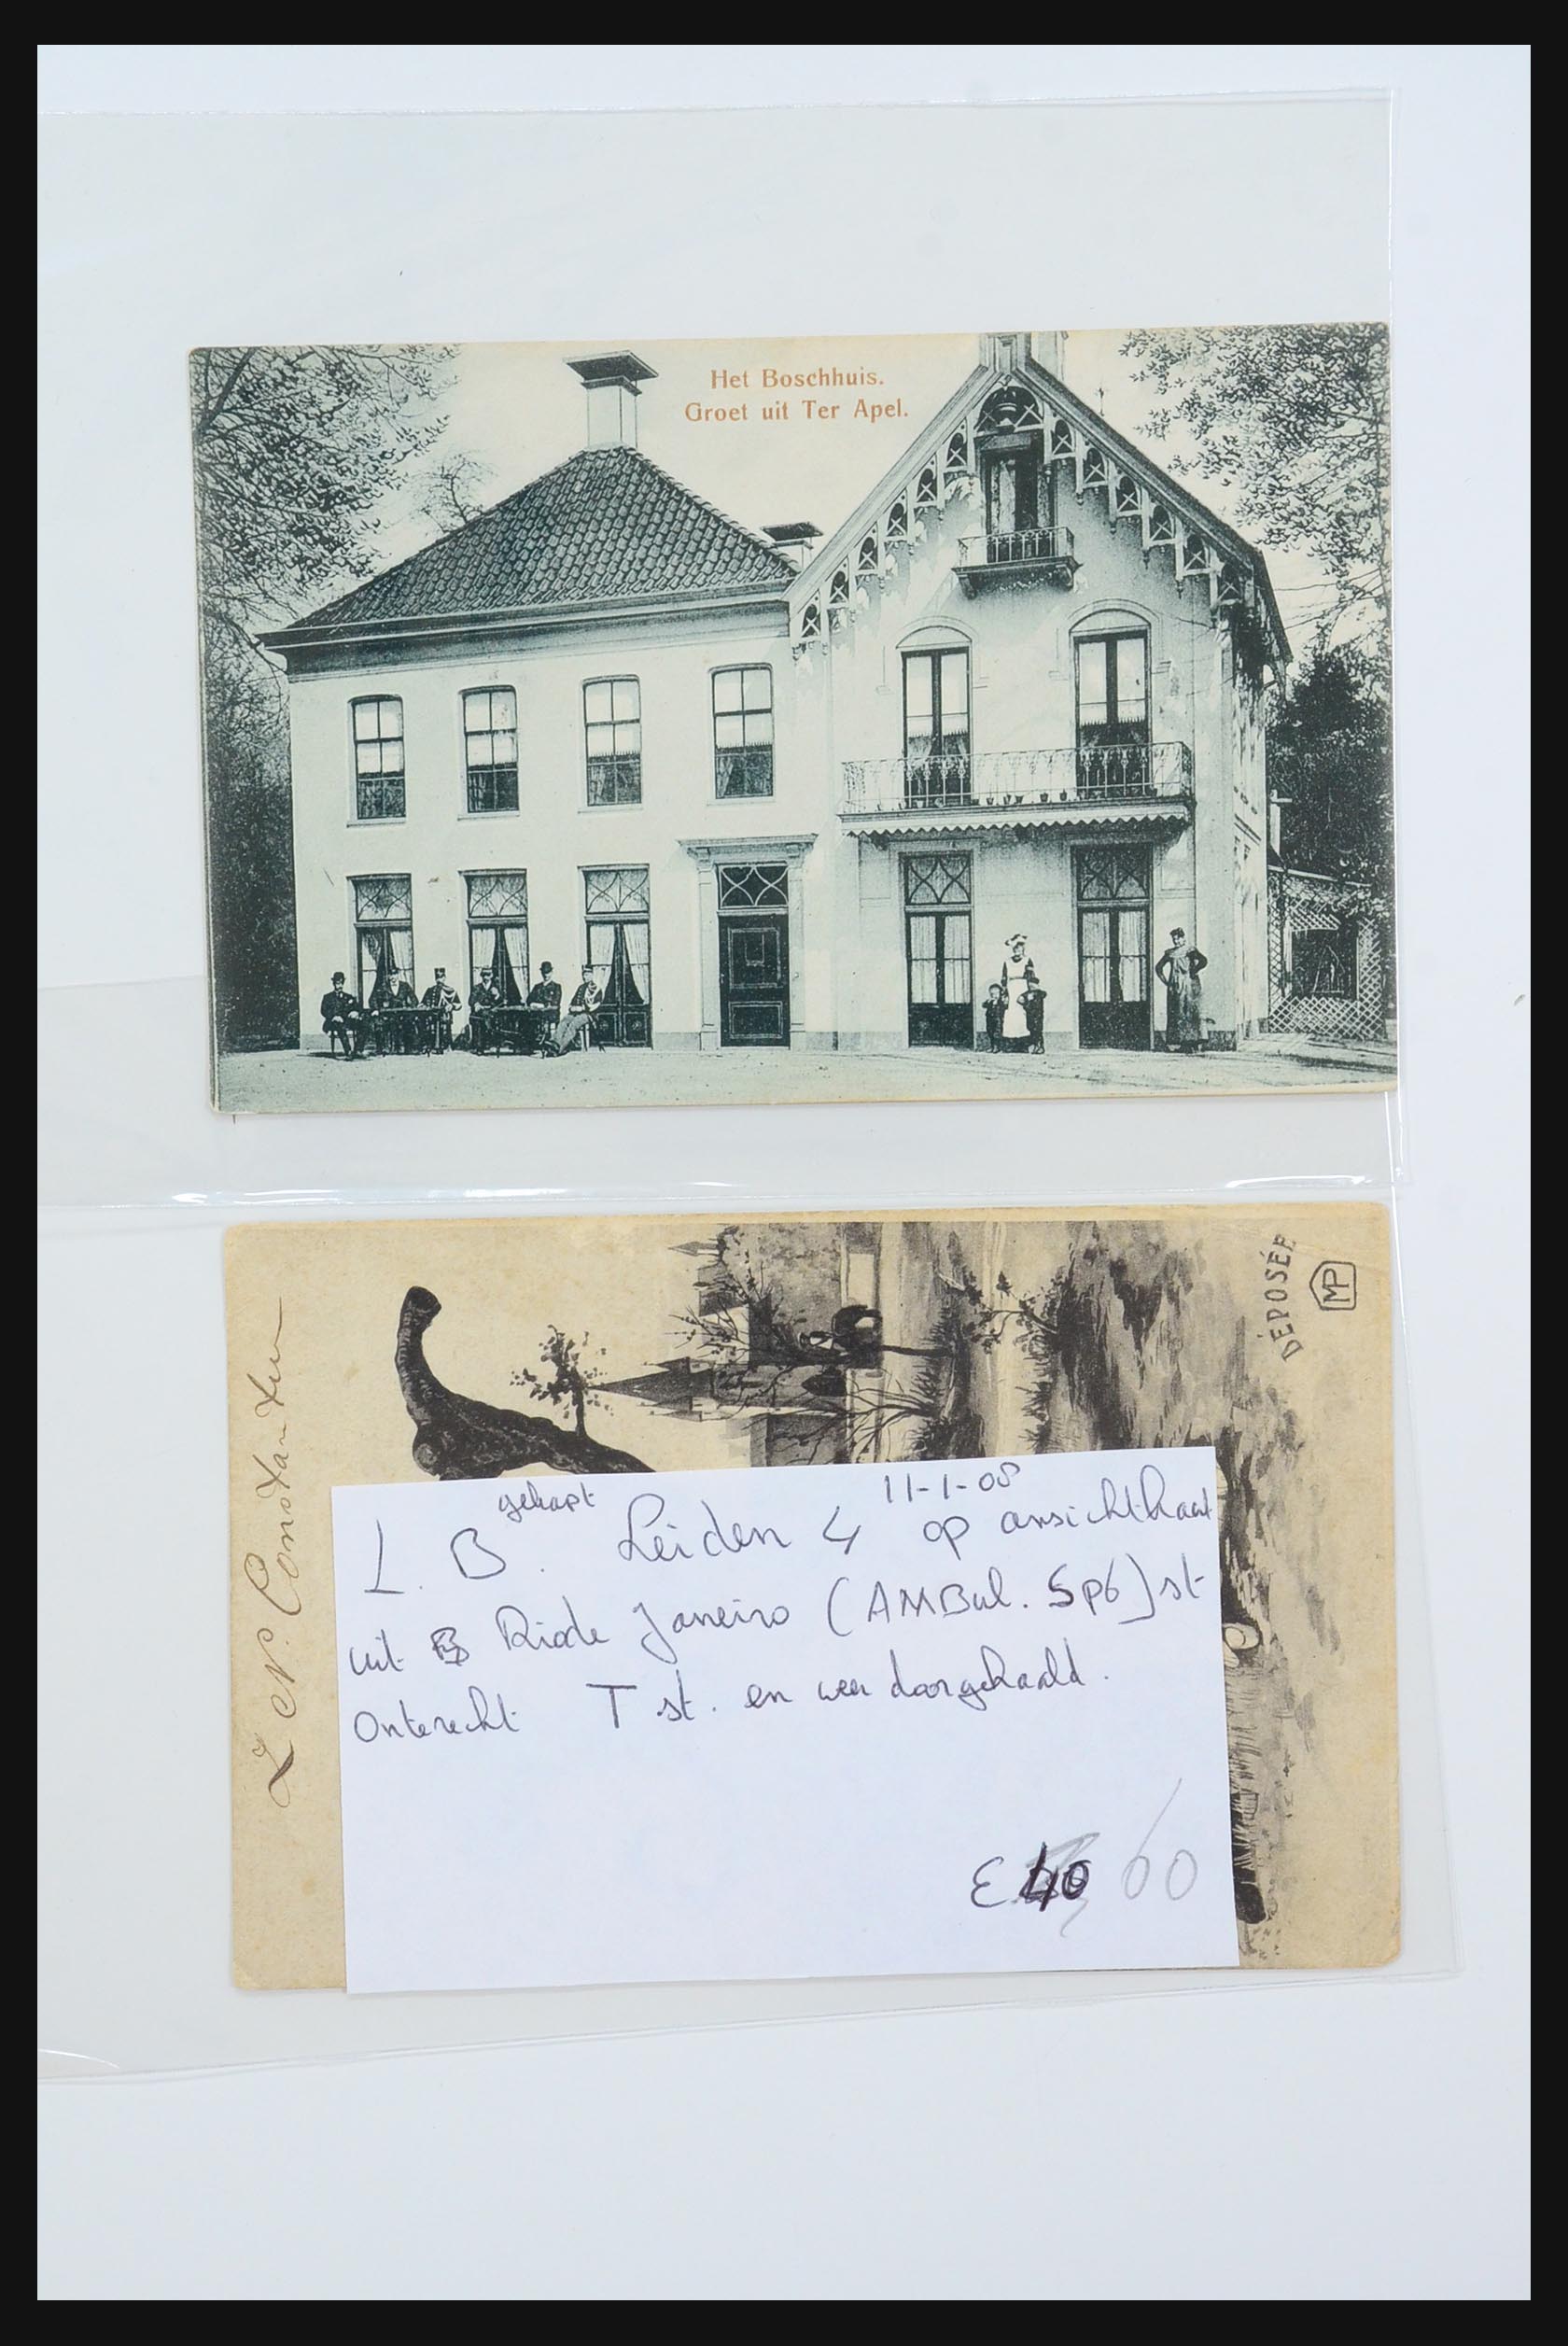 Het Boschhuis.
Groet uit Ter Apel.
DÉPOSÉE
MP
gekapt 11-1-08
L. B. Leiden 4 op ansichtkaart
uit Rio de Janeiro (AMBul. SP6) st
Onterecht T st. en weer doorgehaald.
€ 40 60